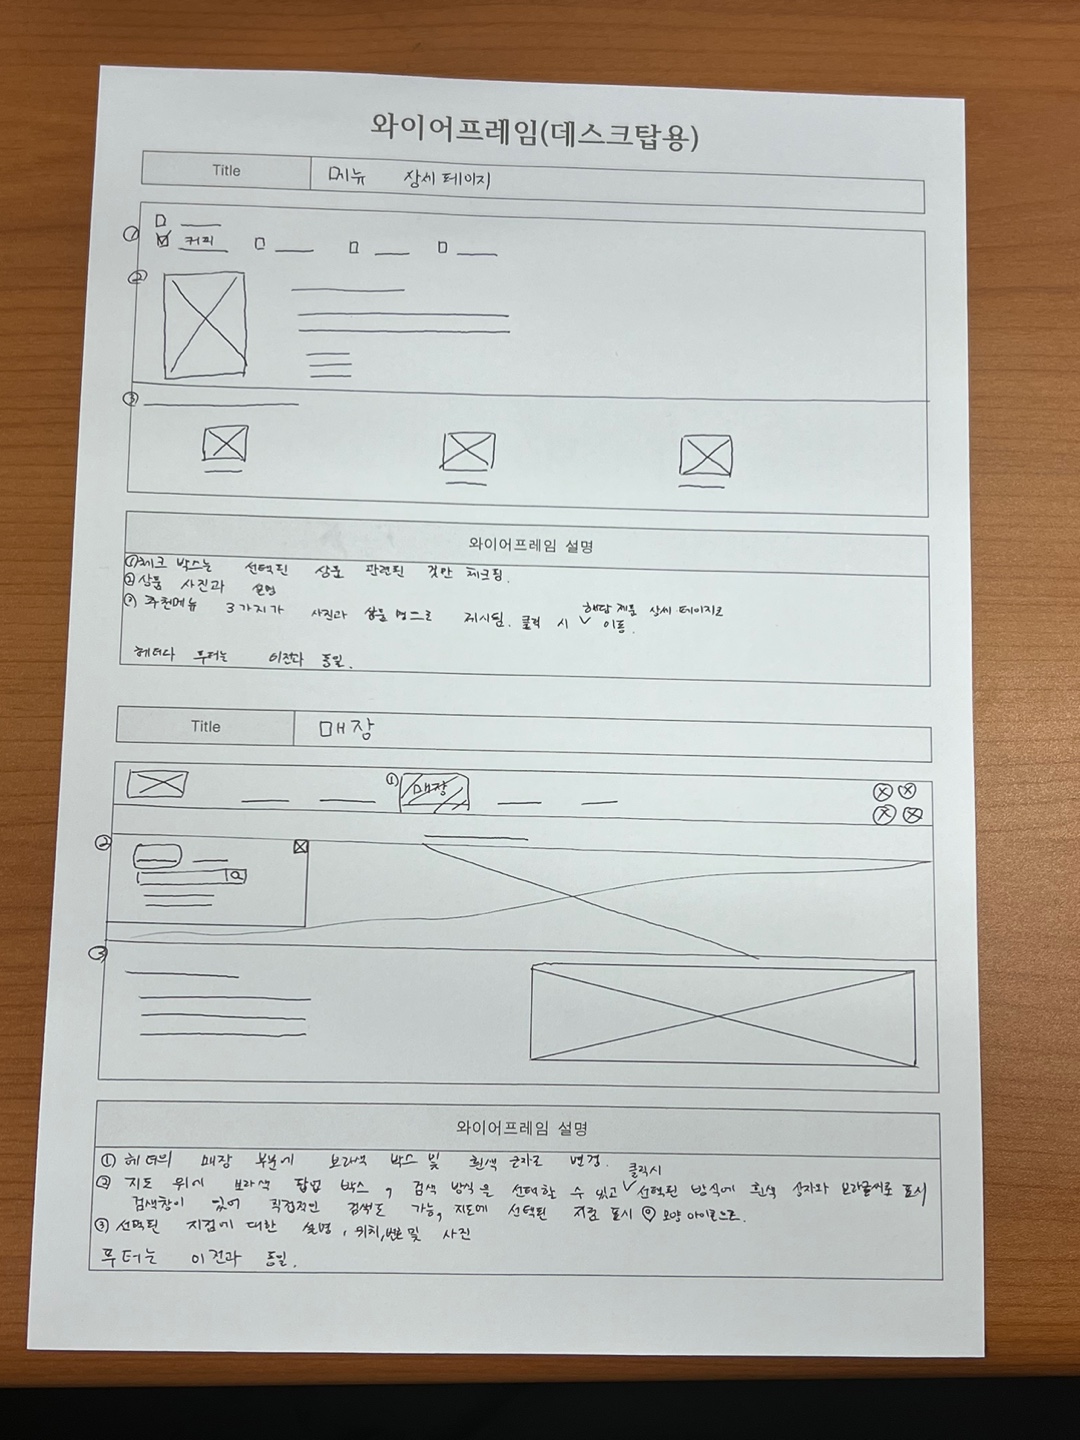 와이어프레임(데스크탑용)
Title 메뉴 상세 페이지
①
커피
②
③
와이어프레임 설명
①체크 박스는 선택된 상품 관련된 것만 체크됨.
②상품 사진과 설명
③ 추천메뉴 3가지가 사진과 상품 명으로 제시됨. 클릭 시 ✓ 해당 제품 상세 페이지로 이동.
헤더와 푸터는 이전과 동일.
Title 매장
① 매장
②
③
와이어프레임 설명
① 헤더의 매장 부분에 보라색 박스 및 흰색 글자로 변경.
② 지도 위에 보라색 팝업 박스, 검색 방식을 선택할 수 있고 ✓ 클릭시 선택된 방식에 흰색 상자와 보라글씨로 표시
검색창이 있어 직접적인 검색도 가능, 지도에 선택된 지점 표시 모양 아이콘으로.
③ 선택된 지점에 대한 설명, 위치, 번호 및 사진
푸터는 이전과 동일.